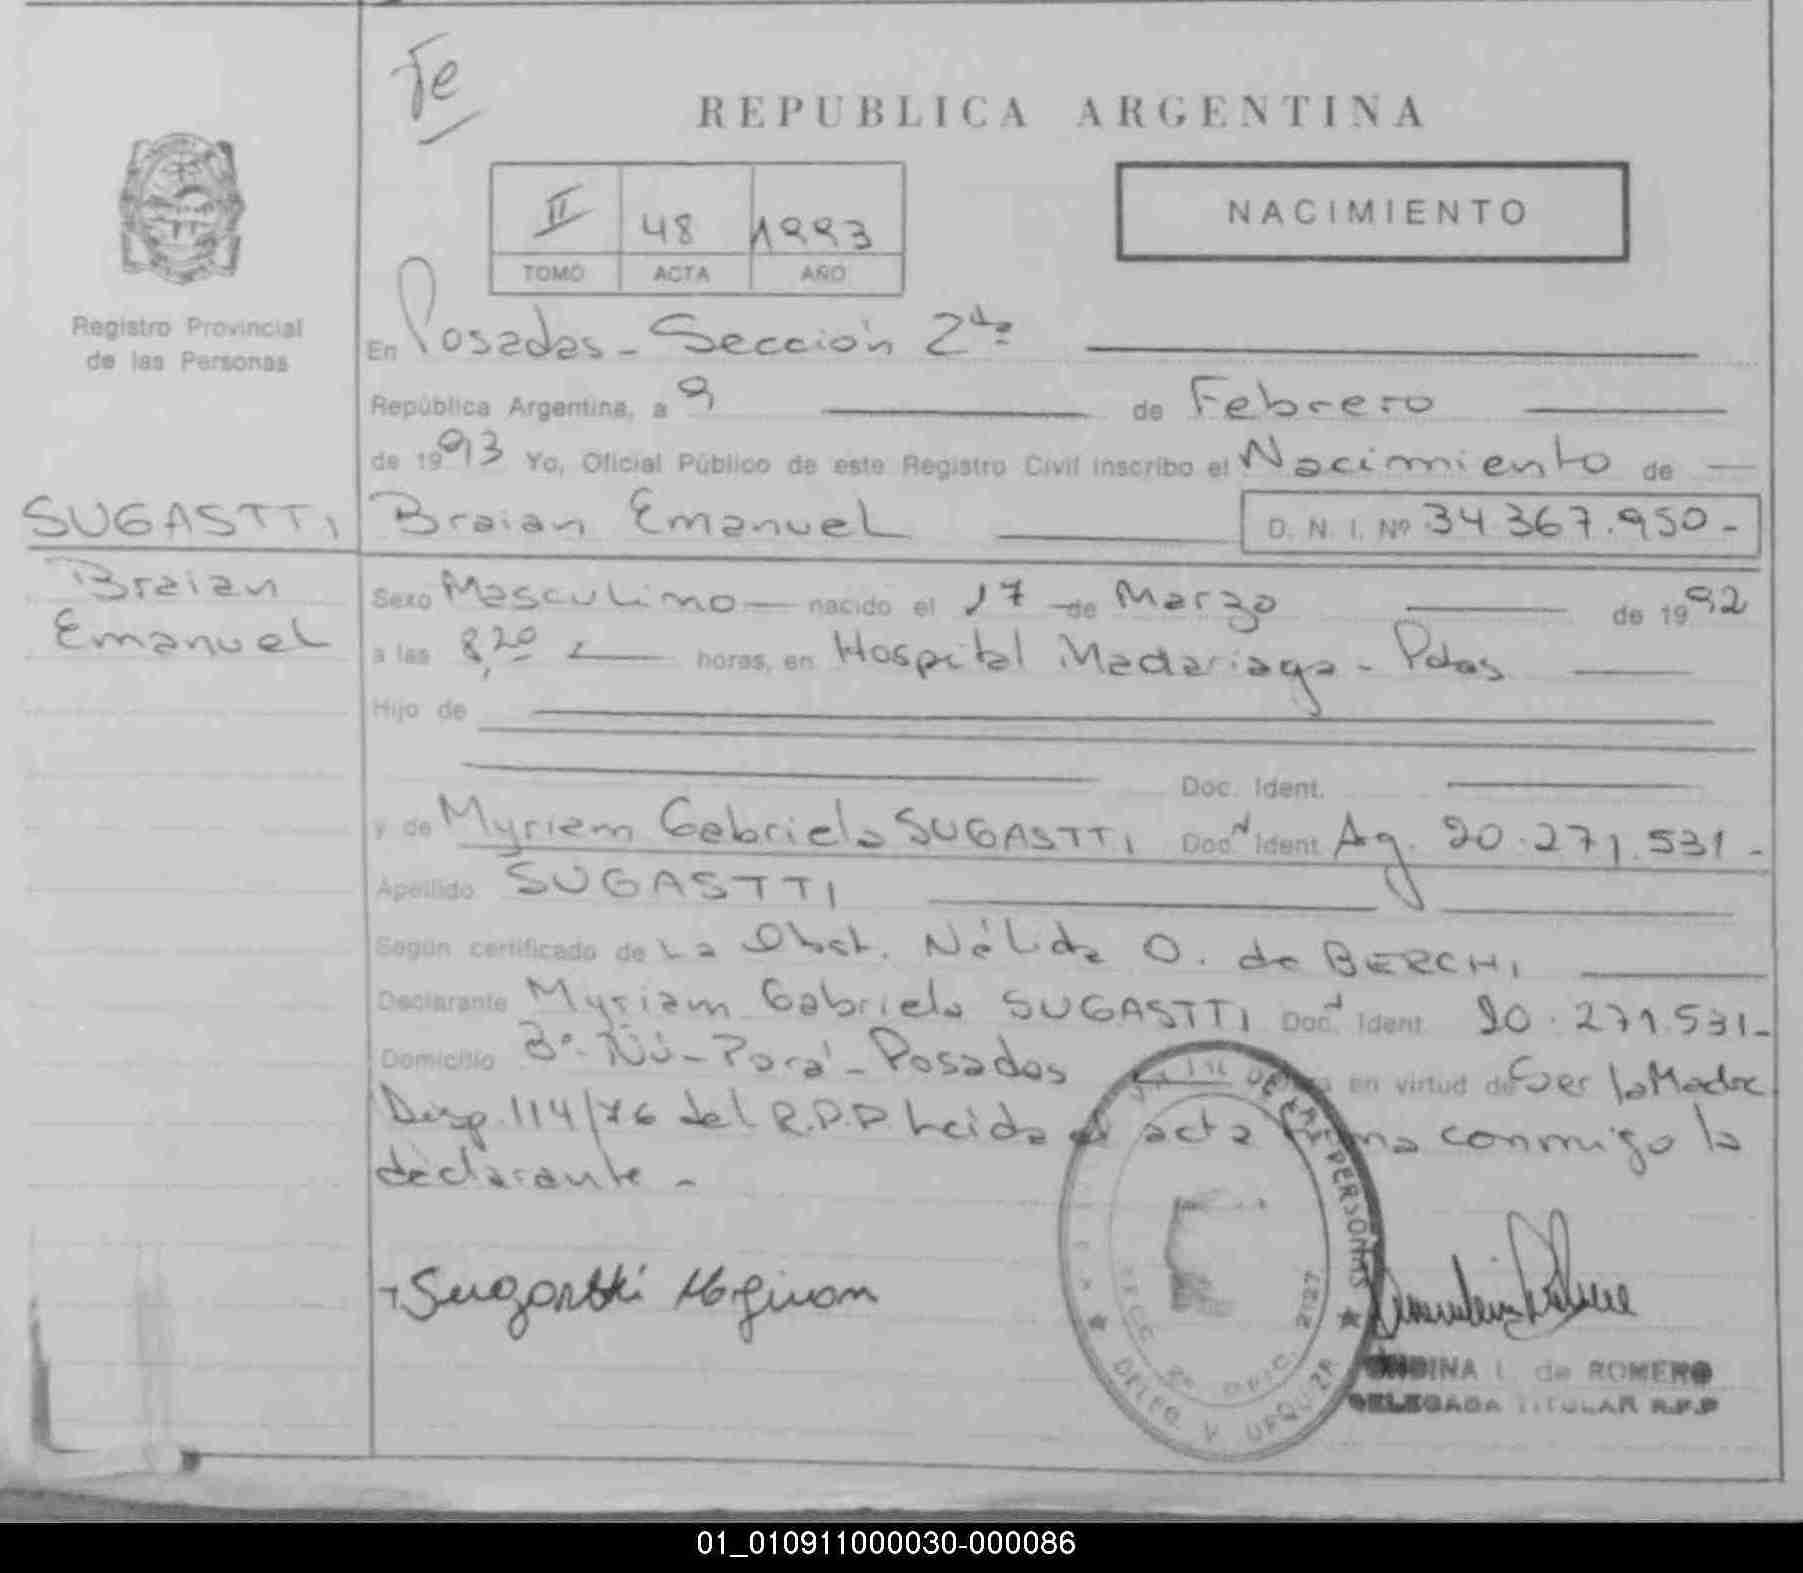 Fe
REPUBLICA ARGENTINA
II 48 1993
TOMO ACTA AÑO
NACIMIENTO
Registro Provincial
de las Personas
En Posadas - Sección 2da
República Argentina, a 9 de Febrero
de 1993 Yo, Oficial Público de este Registro Civil inscribo el Nacimiento de
SUGASTTI Braian Emanuel D. N. I. Nº 34.367.950-
Braian
Emanuel
Sexo Masculino nacido el 17 de Marzo de 1992
a las 8,20 horas, en Hospital Madariaga - Pdas
Hijo de
Doc. Ident.
y de Myriam Gabriela SUGASTTI Doc. Ident Ag. 20.271.531-
Apellido SUGASTTI
Según certificado de La Obst. Nélida O. de BERCHI
Declarante Myriam Gabriela SUGASTTI Doc. Ident 20.271.531-
Domicilio Bº Ñú-Porá - Posadas en virtud de ser la Madre
Disp. 114/76 del R.P.P. Leida el acta firma conmigo la
declarante -
Sugastti
DE LAS PERSONAS
SECC 2º OFIC. 2127
DELEG. V. URQUIZA
INA I. de ROMERO
DELEGADA TITULAR R.P.P
01_010911000030-000086